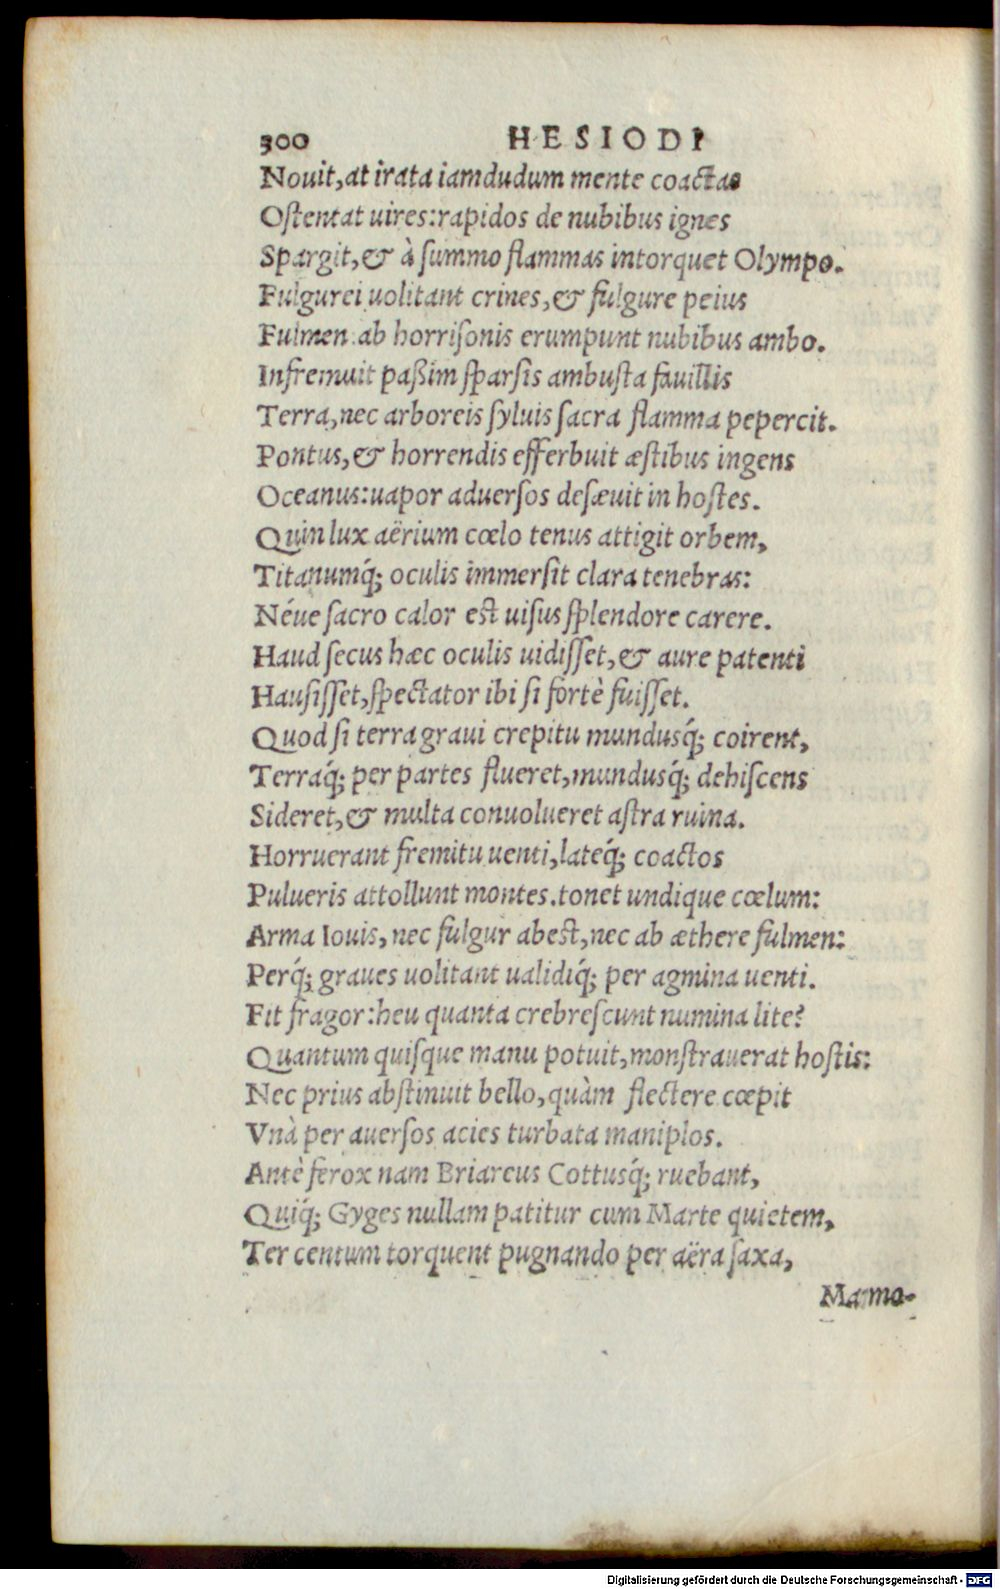 300 HESIODI
Nouit, at irata iamdudum mente coactas
Ostentat uires: rapidos de nubibus ignes
Spargit, & à summo flammas intorquet Olympo.
Fulgurei uolitant crines, & fulgure peius
Fulmen ab horrisonis erumpunt nubibus ambo.
Infremuit paßim sparsis ambusta fauillis
Terra, nec arboreis syluis sacra flamma pepercit.
Pontus, & horrendis efferbuit æstibus ingens
Oceanus: uapor aduersos desæuit in hostes.
Quin lux aërium cœlo tenus attigit orbem,
Titanumq́; oculis immersit clara tenebras:
Néue sacro calor est uisus splendore carere.
Haud secus hæc oculis uidisset, & aure patenti
Hausisset, spectator ibi si fortè fuisset.
Quod si terra graui crepitu mundusq́; coirent,
Terraq́; per partes flueret, mundusq́; dehiscens
Sideret, & multa conuolueret astra ruina.
Horruerant fremitu uenti, lateq́; coactos
Pulueris attollunt montes. tonet undique cœlum:
Arma Iouis, nec fulgur abest, nec ab æthere fulmen:
Perq́; graues uolitant ualidiq́; per agmina uenti.
Fit fragor: heu quanta crebrescunt numina lite?
Quantum quisque manu potuit, monstrauerat hostis:
Nec prius abstinuit bello, quàm flectere cœpit
Vnà per auersos acies turbata maniplos.
Antè ferox nam Briareus Cottusq́; ruebant,
Quiq́; Gyges nullam patitur cum Marte quietem,
Ter centum torquent pugnando per aëra saxa,
Digitalisierung gefördert durch die Deutsche Forschungsgemeinschaft - DFG